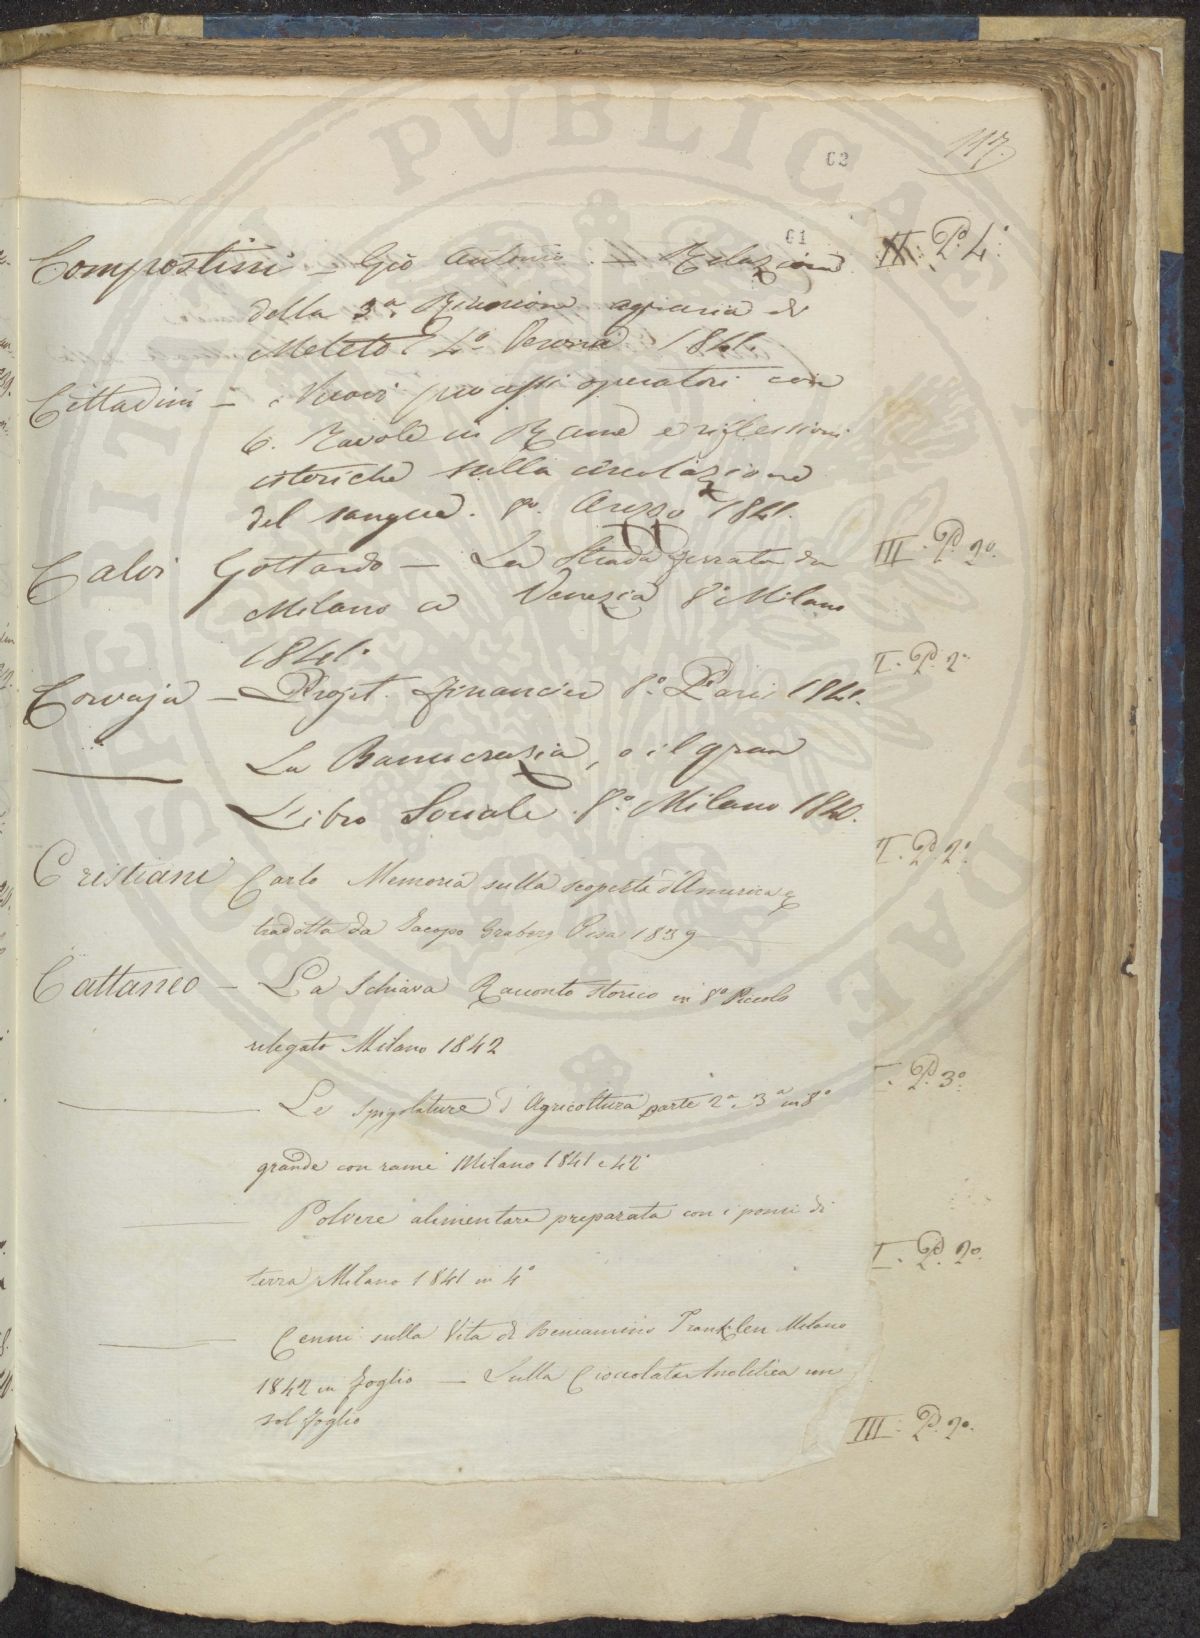 62
117.
61
Compostini - Giō Antonio. - Relazione
IX. P.º 4.º
della 3.ª Riunione agraria di
Meleto 4.º Verona 1841.
Cittadini - Nuovi processi operatori con
6. Tavole in Rame e riflessioni
istoriche sulla circolazione
del sangue. 8.º Arezzo 1841.
Calvi Gottardo - La Strada ferrata da
III. P.º 2º.
Milano a Venezia 8º Milano
1841.
I. P. 2º
Corvaja - Projet financier 8.º Paris 1841.
La Bancocrazia, o il gran
Libro Sociale 8.º Milano 1840.
Cristiani Carlo Memoria sulla scoperta d'America
I. P.º 2º.
tradotta da Jacopo Graberg Pisa 1839
Cattaneo - La Schiava Racconto Storico in 8º Piccolo
relegato Milano 1842
I. P.º 3º.
Le Spigolature d'Agricoltura parte 2ª. 3ª in 8º
grande con rami Milano 1841 e 42
Polvere alimentare preparata con i pomi di
I. P.º 2º.
terra Milano 1841 in 4º
Cenni sulla Vita di Beniamino Franklen Milano
1842 in foglio - Sulla Cioccolata Analitica un
sol foglio
III. P. 2º.